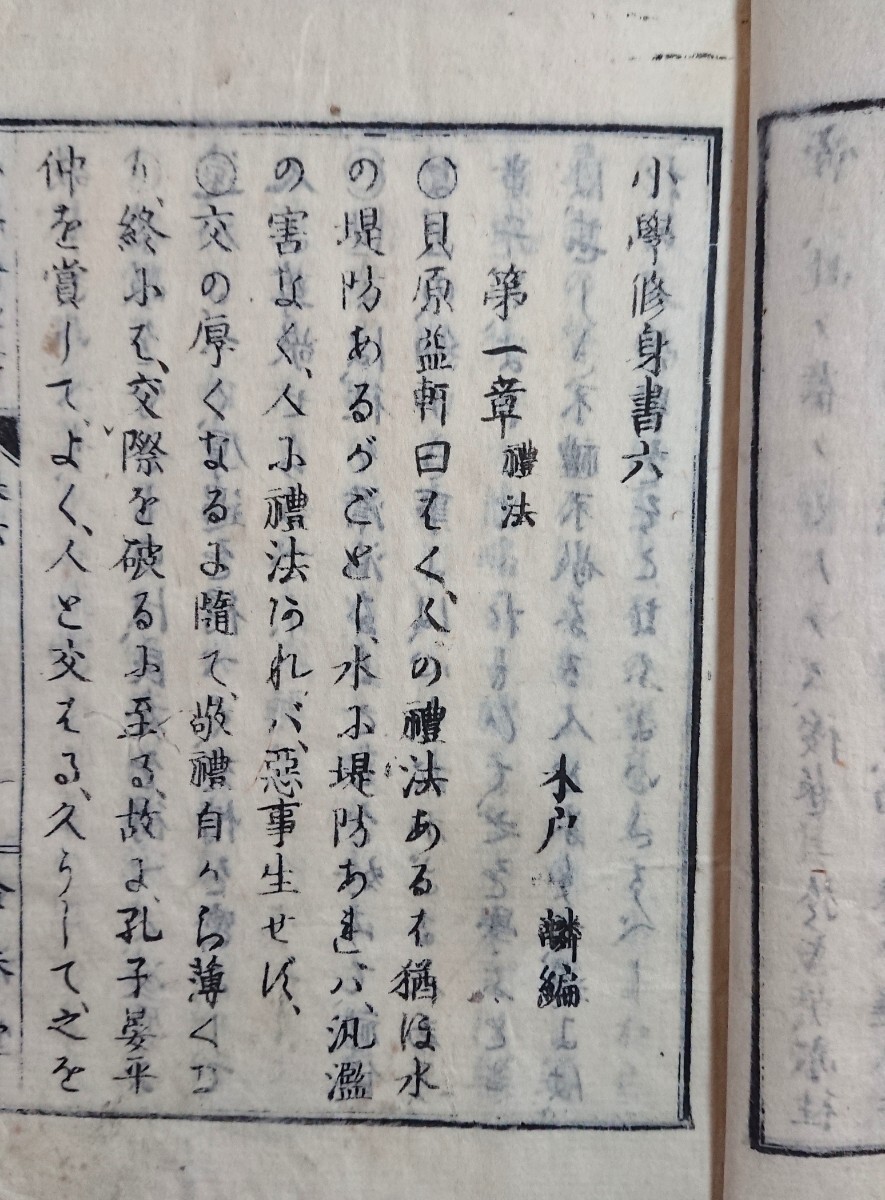 小學修身書六
木戸麟編
第一章 禮法
○貝原益軒曰はく、人の禮法あるは猶ほ水
の堤防あるがごとし、水に堤防あれバ、汎濫
の害なく、人に禮法あれバ、惡事生せず、
○交の厚くなるに隨て、敬禮自から薄くな
り、終には、交際を破るに至る、故に、孔子晏平
仲を賞して、よく、人と交はる、久うして、之を